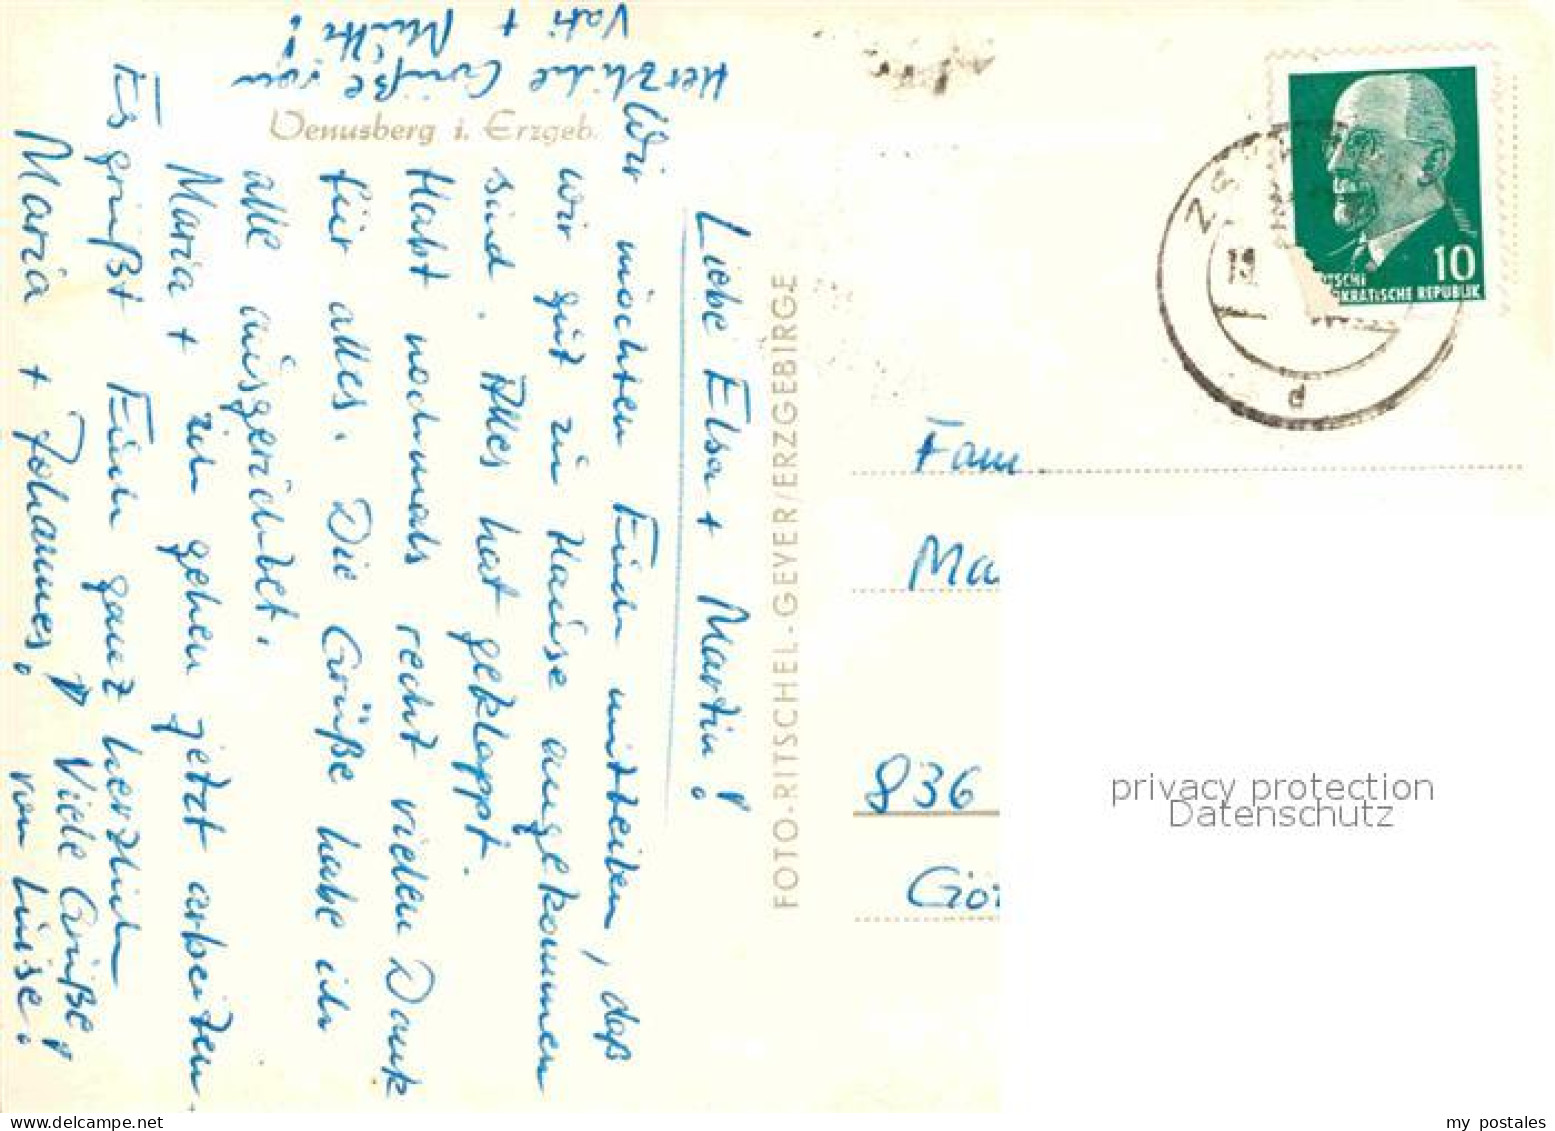 Venusberg i. Erzgeb.
Liebe Elsa + Martin!
Wir möchten Euch mitteilen, daß
wir gut zu Hause angekommen
sind. Alles hat geklappt.
Habt nochmals recht vielen Dank
für alles. Die Grüße habe ich
alle ausgerichtet.
Maria + ich gehen jetzt arbeiten.
Es grüßt Euch ganz herzlich
Maria + Johannes.
Viele Grüße!
von Luise.
Herzliche Grüße von
Vati + Mutti!
FOTO-RITSCHEL-GEYER/ERZGEBIRGE
10
KRATISCHE REPUBLIK
Fam.
Ma
836
Gör
privacy protection
Datenschutz
my postales